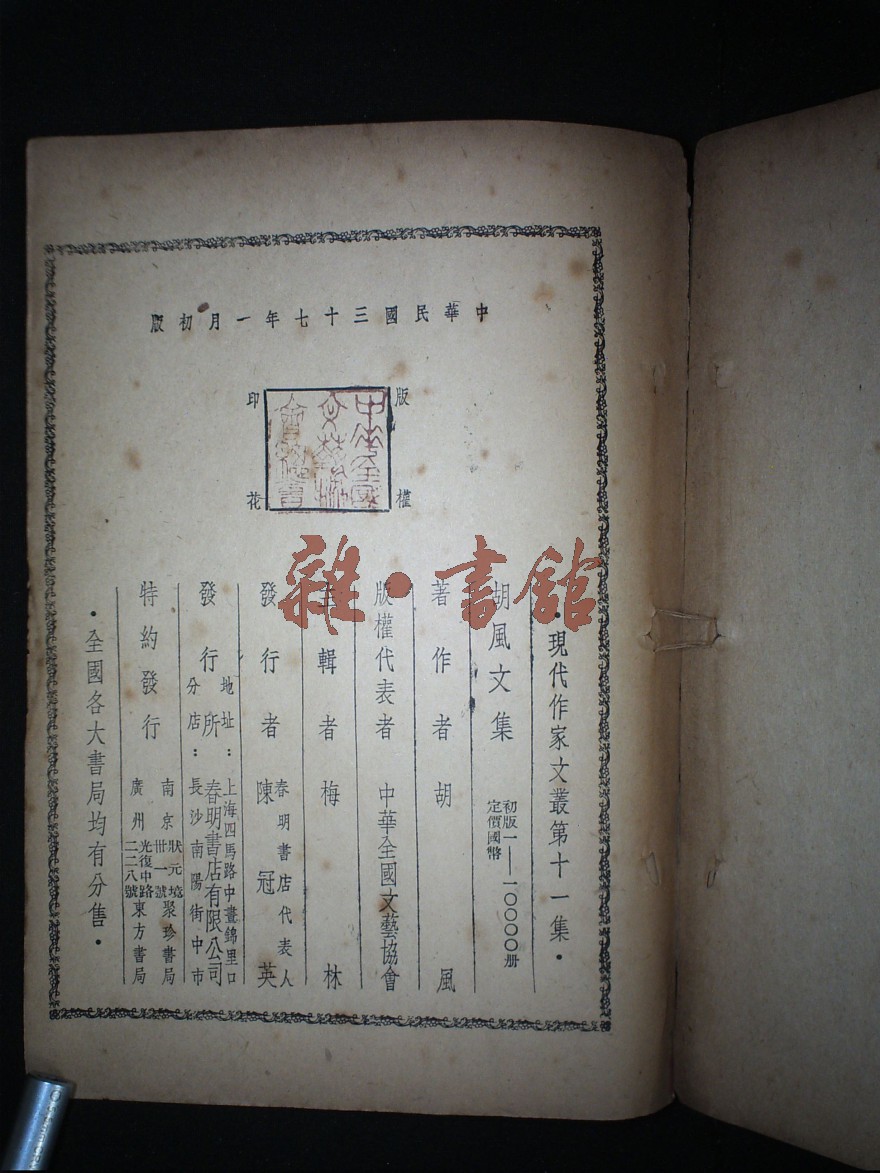 中華民國三十七年一月初版
版權
印花
中華全國
文藝協
會圖書
雜·書館
·現代作家文叢第十一集·
胡風文集
初版一——一〇〇〇〇册
定價國幣
著作者 胡風
版權代表者 中華全國文藝協會
主輯者 梅林
發行者 春明書店代表人 陳冠英
發行所 春明書店有限公司
地址：上海四馬路中晝錦里口
分店：長沙南陽街中市
特約發行
南京 狀元境卅一號 聚珍書局
廣州 光復中路二二八號 東方書局
·全國各大書局均有分售·